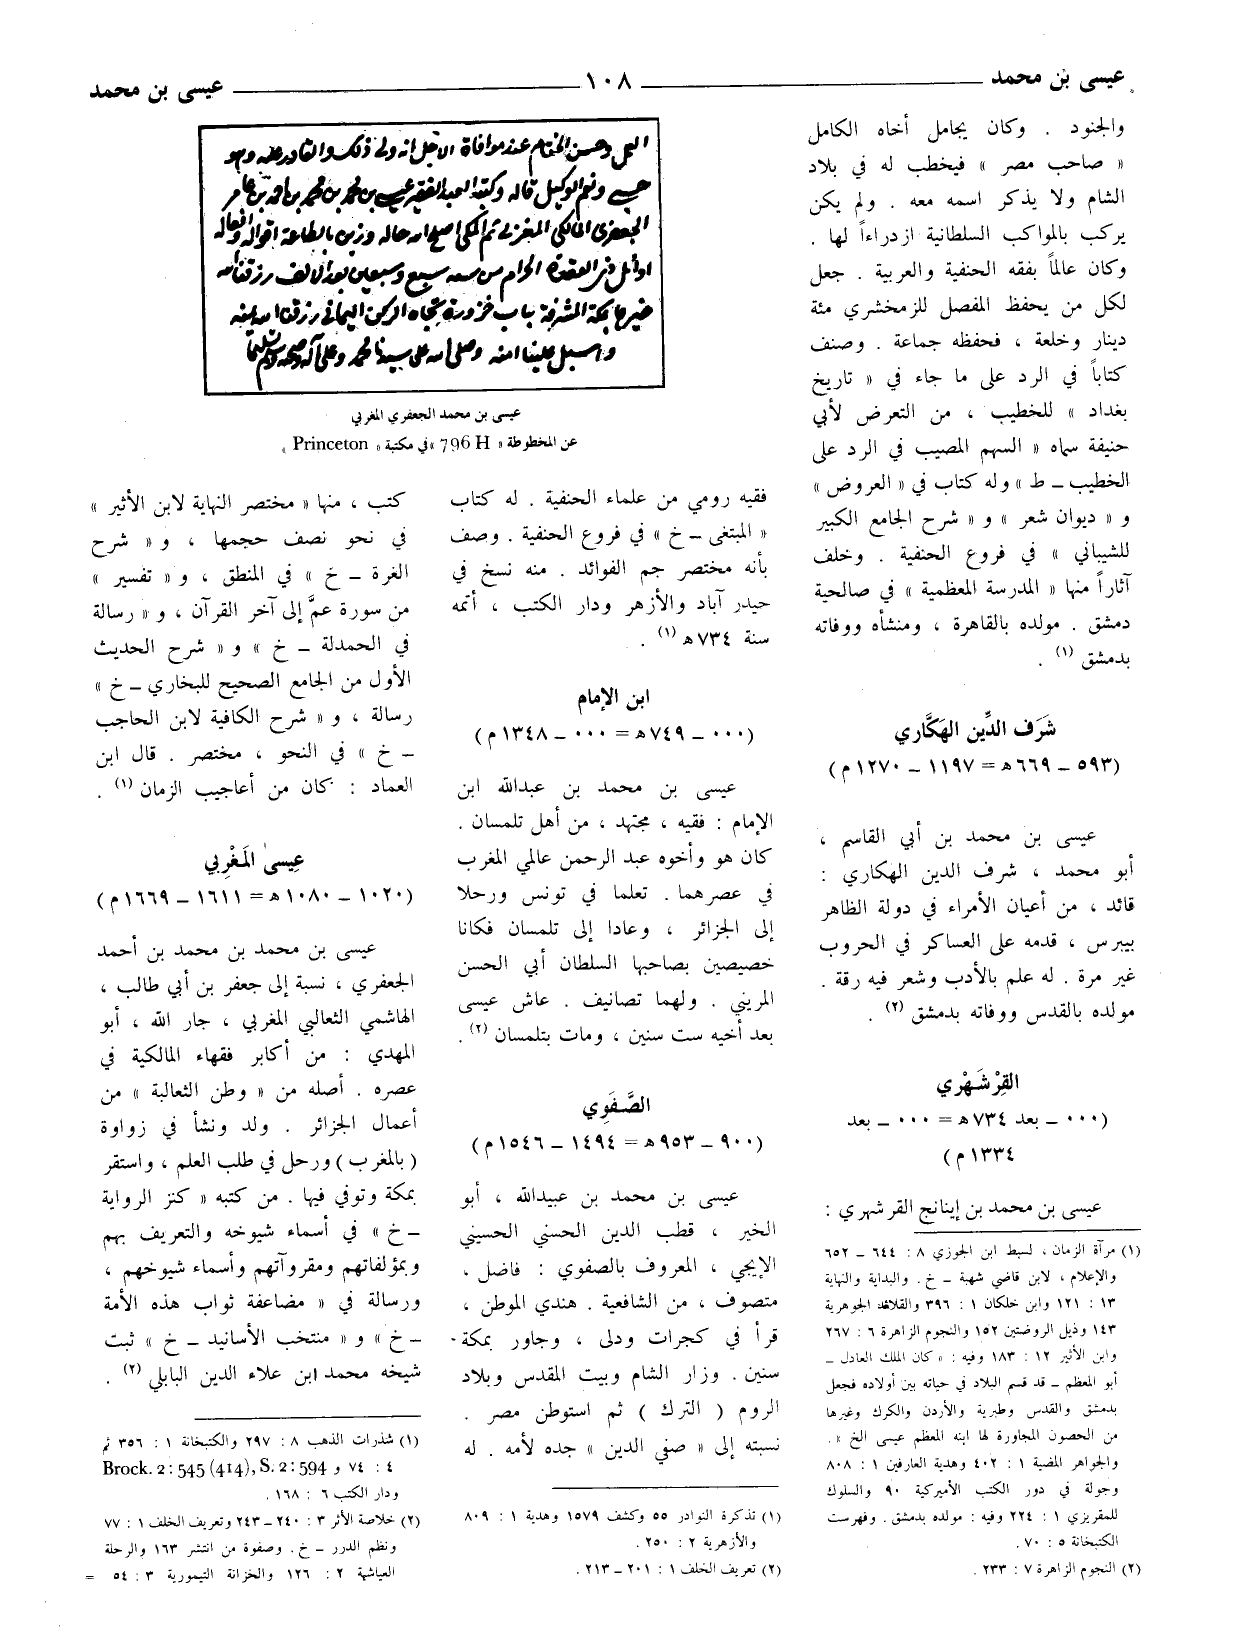 عيسى بن محمد
١٠٨
عيسى بن محمد
والجنود . وكان يجامل أخاه الكامل
« صاحب مصر » فيخطب له في بلاد
الشام ولا يذكر اسمه معه . ولم يكن
يركب بالمواكب السلطانية ازدراءاً لها .
وكان عالماً بفقه الحنفية والعربية . جعل
لكل من يحفظ المفصل للزمخشري مئة
دينار وخلعة ، فحفظه جماعة . وصنف
كتاباً في الرد على ما جاء في « تاريخ
بغداد » للخطيب ، من التعرض لأبي
حنيفة سماه « السهم المصيب في الرد على
الخطيب ــ ط » وله كتاب في « العروض »
و « ديوان شعر » و « شرح الجامع الكبير
للشيباني » في فروع الحنفية . وخلف
آثاراً منها « المدرسة المعظمية » في صالحية
دمشق . مولده بالقاهرة ، ومنشأه ووفاته
بدمشق (١) .
شَرَف الدِّين الهَكَّاري
(٥٩٣ ــ ٦٦٩ هـ = ١١٩٧ ــ ١٢٧٠ م)
عيسى بن محمد بن أبي القاسم ،
أبو محمد ، شرف الدين الهكاري :
قائد ، من أعيان الأمراء في دولة الظاهر
بيبرس ، قدمه على العساكر في الحروب
غير مرة . له علم بالأدب وشعر فيه رقة .
مولده بالقدس ووفاته بدمشق (٢) .
القِرْشَهْري
(٠٠٠ ــ بعد ٧٣٤ هـ = ٠٠٠ ــ بعد
١٣٣٤ م)
عيسى بن محمد بن إينانج القرشهري :
(١) مرآة الزمان ، لسبط ابن الجوزي ٨ : ٦٤٤ ــ ٦٥٢
والإعلام ، لابن قاضي شهبة ــ خ . والبداية والنهاية
١٣ : ١٢١ وابن خلكان ١ : ٣٩٦ والقلائد الجوهرية
١٤٣ وذيل الروضتين ١٥٢ والنجوم الزاهرة ٦ : ٢٦٧
وابن الأثير ١٢ : ١٨٣ وفيه : « كان الملك العادل ــ
أبو المعظم ــ قد قسم البلاد في حياته بين أولاده فجعل
بدمشق والقدس وطبرية والأردن والكرك وغيرها
من الحصون المجاورة لها ابنه المعظم عيسى الخ » .
والجواهر المضية ١ : ٤٠٢ وهدية العارفين ١ : ٨٠٨
وجولة في دور الكتب الأميركية ٩٠ والسلوك
للمقريزي ١ : ٢٢٤ وفيه : مولده بدمشق . وفهرست
الكتبخانة ٥ : ٧٠ .
(٢) النجوم الزاهرة ٧ : ٢٣٣ .
عيسى بن محمد الجعفري المغربي
عن المخطوطة « 796 H » في مكتبة « Princeton »
فقيه رومي من علماء الحنفية . له كتاب
« المبتغى ــ خ » في فروع الحنفية . وصف
بأنه مختصر جم الفوائد . منه نسخ في
حيدر آباد والأزهر ودار الكتب ، أتمه
سنة ٧٣٤ هـ (١) .
ابن الإمام
(٠٠٠ ــ ٧٤٩ هـ = ٠٠٠ ــ ١٣٤٨ م)
عيسى بن محمد بن عبدالله ابن
الإمام : فقيه ، مجتهد ، من أهل تلمسان .
كان هو وأخوه عبد الرحمن عالمي المغرب
في عصرهما . تعلما في تونس ورحلا
إلى الجزائر ، وعادا إلى تلمسان فكانا
خصيصين بصاحبها السلطان أبي الحسن
المريني . ولهما تصانيف . عاش عيسى
بعد أخيه ست سنين ، ومات بتلمسان (٢) .
الصَّفَوِي
(٩٠٠ ــ ٩٥٣ هـ = ١٤٩٤ ــ ١٥٤٦ م)
عيسى بن محمد بن عبيدالله ، أبو
الخير ، قطب الدين الحسني الحسيني
الإيجي ، المعروف بالصفوي : فاضل ،
متصوف ، من الشافعية . هندي الموطن ،
قرأ في كجرات ودلى ، وجاور بمكة
سنين . وزار الشام وبيت المقدس وبلاد
الروم ( الترك ) ثم استوطن مصر .
نسبته إلى « صفي الدين » جده لأمه . له
(١) تذكرة النوادر ٥٥ وكشف ١٥٧٩ وهدية ١ : ٨٠٩
والأزهرية ٢ : ٢٥٠ .
(٢) تعريف الخلف ١ : ٢٠١ ــ ٢١٣ .
كتب ، منها « مختصر النهاية لابن الأثير »
في نحو نصف حجمها ، و « شرح
الغرة ــ خ » في المنطق ، و « تفسير »
من سورة عمَّ إلى آخر القرآن ، و « رسالة
في الحمدلة ــ خ » و « شرح الحديث
الأول من الجامع الصحيح للبخاري ــ خ »
رسالة ، و « شرح الكافية لابن الحاجب
ــ خ » في النحو ، مختصر . قال ابن
العماد : كان من أعاجيب الزمان (١) .
عِيسىٰ المَغْرِبي
(١٠٢٠ ــ ١٠٨٠ هـ = ١٦١١ ــ ١٦٦٩ م)
عيسى بن محمد بن محمد بن أحمد
الجعفري ، نسبة إلى جعفر بن أبي طالب ،
الهاشمي الثعالبي المغربي ، جار الله ، أبو
المهدي : من أكابر فقهاء المالكية في
عصره . أصله من « وطن الثعالبة » من
أعمال الجزائر . ولد ونشأ في زواوة
( بالمغرب ) ورحل في طلب العلم ، واستقر
بمكة وتوفي فيها . من كتبه « كنز الرواية
ــ خ » في أسماء شيوخه والتعريف بهم
وبمؤلفاتهم ومقروآتهم وأسماء شيوخهم ،
ورسالة في « مضاعفة ثواب هذه الأمة
ــ خ » و « منتخب الأسانيد ــ خ » ثبت
شيخه محمد ابن علاء الدين البابلي (٢) .
(١) شذرات الذهب ٨ : ٢٩٧ والكتبخانة ١ : ٣٥٦ ثم
٤ : ٧٤ و Brock. 2 : 545 (414), S. 2 : 594
ودار الكتب ٦ : ١٦٨ .
(٢) خلاصة الأثر ٣ : ٢٤٠ ــ ٢٤٣ وتعريف الخلف ١ : ٧٧
ونظم الدرر ــ خ . وصفوة من انتشر ١٦٣ والرحلة
العياشية ٢ : ١٢٦ والخزانة التيمورية ٣ : ٥٤ =